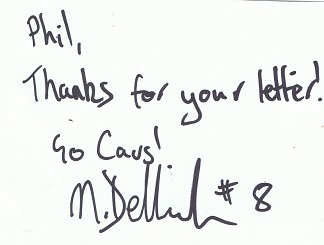 Phil,
Thanks for your letter!
Go Cavs!
M. Dell #8